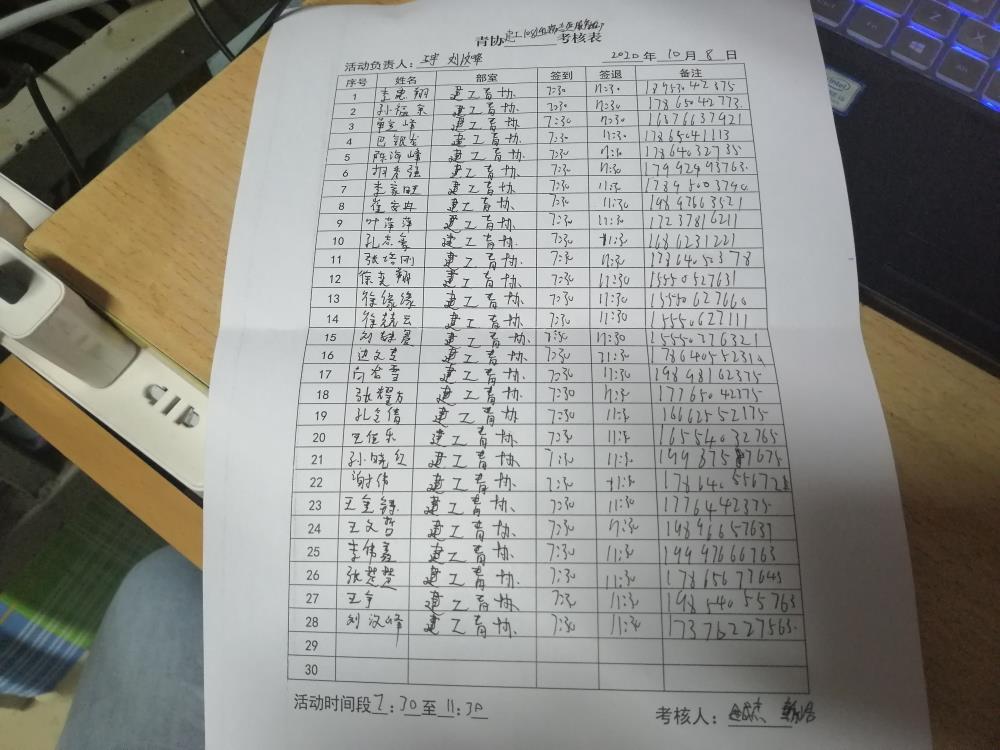 青协 考核表
活动负责人： 刘汉峰 2020 年 10 月 8 日
序号 姓名 部室 签到 签退 备注
1 李忠翔 建工青协 7:30 11:30
2 孙福余 建工青协 7:30 11:30 17865042773
3 建工青协 7:30 11:30 16676637921
4 巴银龙 建工青协 7:30 11:30 17865041113
5 陈海峰 建工青协 7:30 11:30 17864032735
6 建工青协 7:30 11:30 17992493763
7 李家旺 建工青协 7:30 11:30
8 崔安冉 建工青协 7:30 11:30 19897663521
9 叶萍萍 建工青协 7:30 11:30 17237816211
10 孔志豪 建工青协 7:30 11:30 1686231221
11 张培刚 建工青协 7:30 11:30 17864052378
12 徐文翔 建工青协 7:30 11:30 15550527631
13 徐缘缘 建工青协 7:30 11:30 15550627660
14 建工青协 7:30 11:30 15550627111
15 建工青协 7:30 11:30 15550276321
16 建工青协 7:30 11:30
17 建工青协 7:30 11:30 19898162375
18 张耀方 建工青协 7:30 11:30 17765042375
19 孔令倩 建工青协 7:30 11:30 16662552175
20 王佳乐 建工青协 7:30 11:30 16554032765
21 孙晓红 建工青协 7:30 11:30
22 谢伟 建工青协 7:30 11:30 17864055672
23 建工青协 7:30 11:30 1776442375
24 王文哲 建工青协 7:30 11:30 19896657637
25 李伟鑫 建工青协 7:30 11:30 19997666763
26 张楚楚 建工青协 7:30 11:30 17865677645
27 王宁 建工青协 7:30 11:30 19854055763
28 刘汉峰 建工青协 7:30 11:30 17376227565
29
30
活动时间段 7:30 至 11:30 考核人：